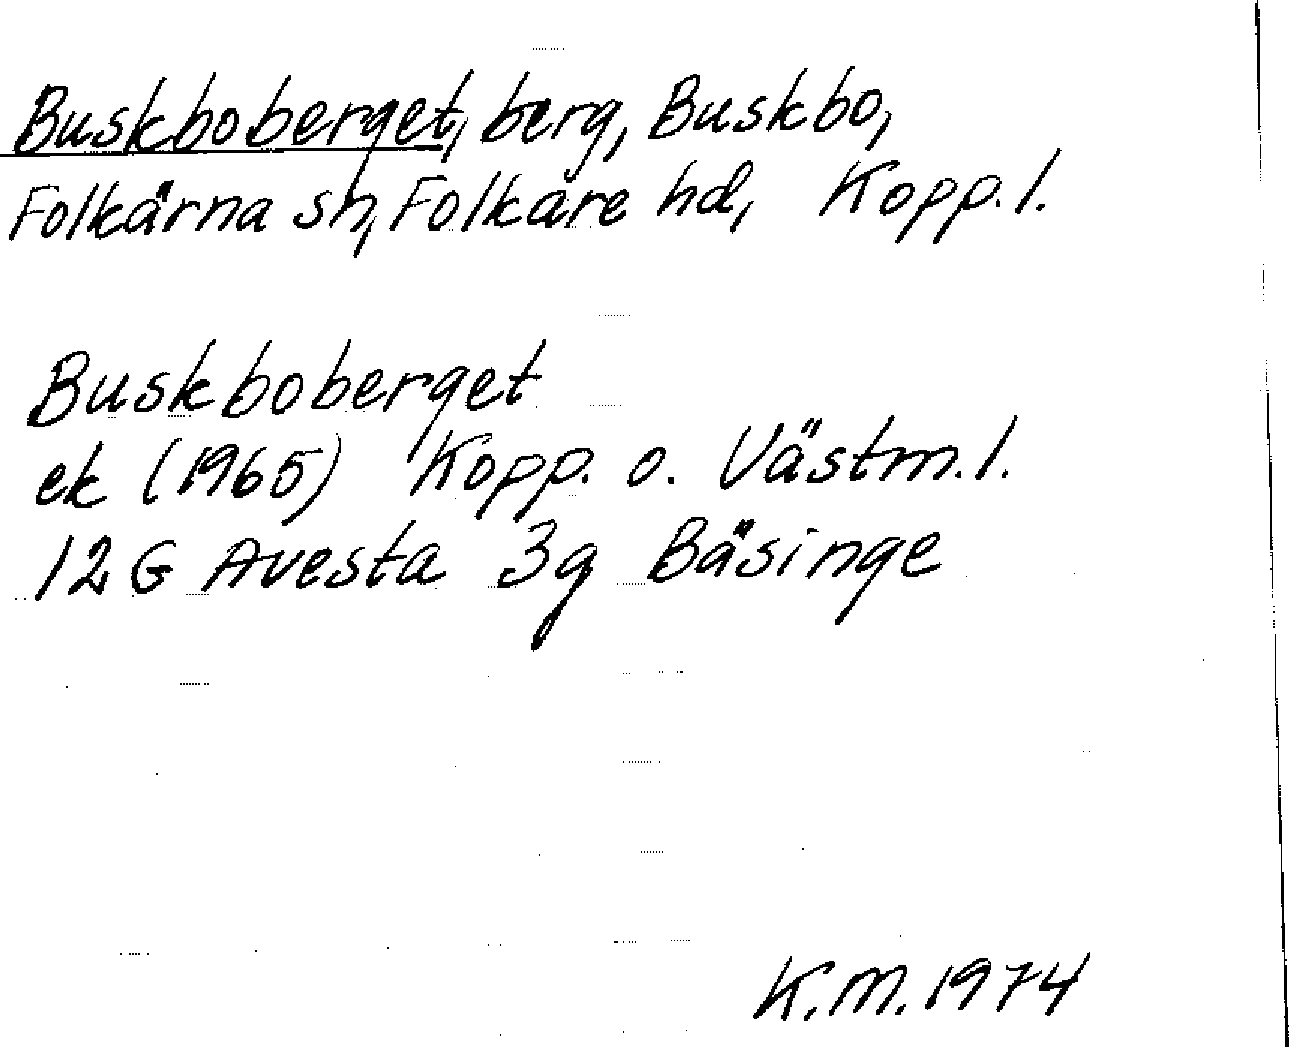 Buskboberget, berg, Buskbo,
Folkärna sn, Folkare hd, Kopp. l.
Buskboberget
ek (1965) Kopp. o. Västm. l.
12G Avesta 3g Bäsinge
K.M. 1974